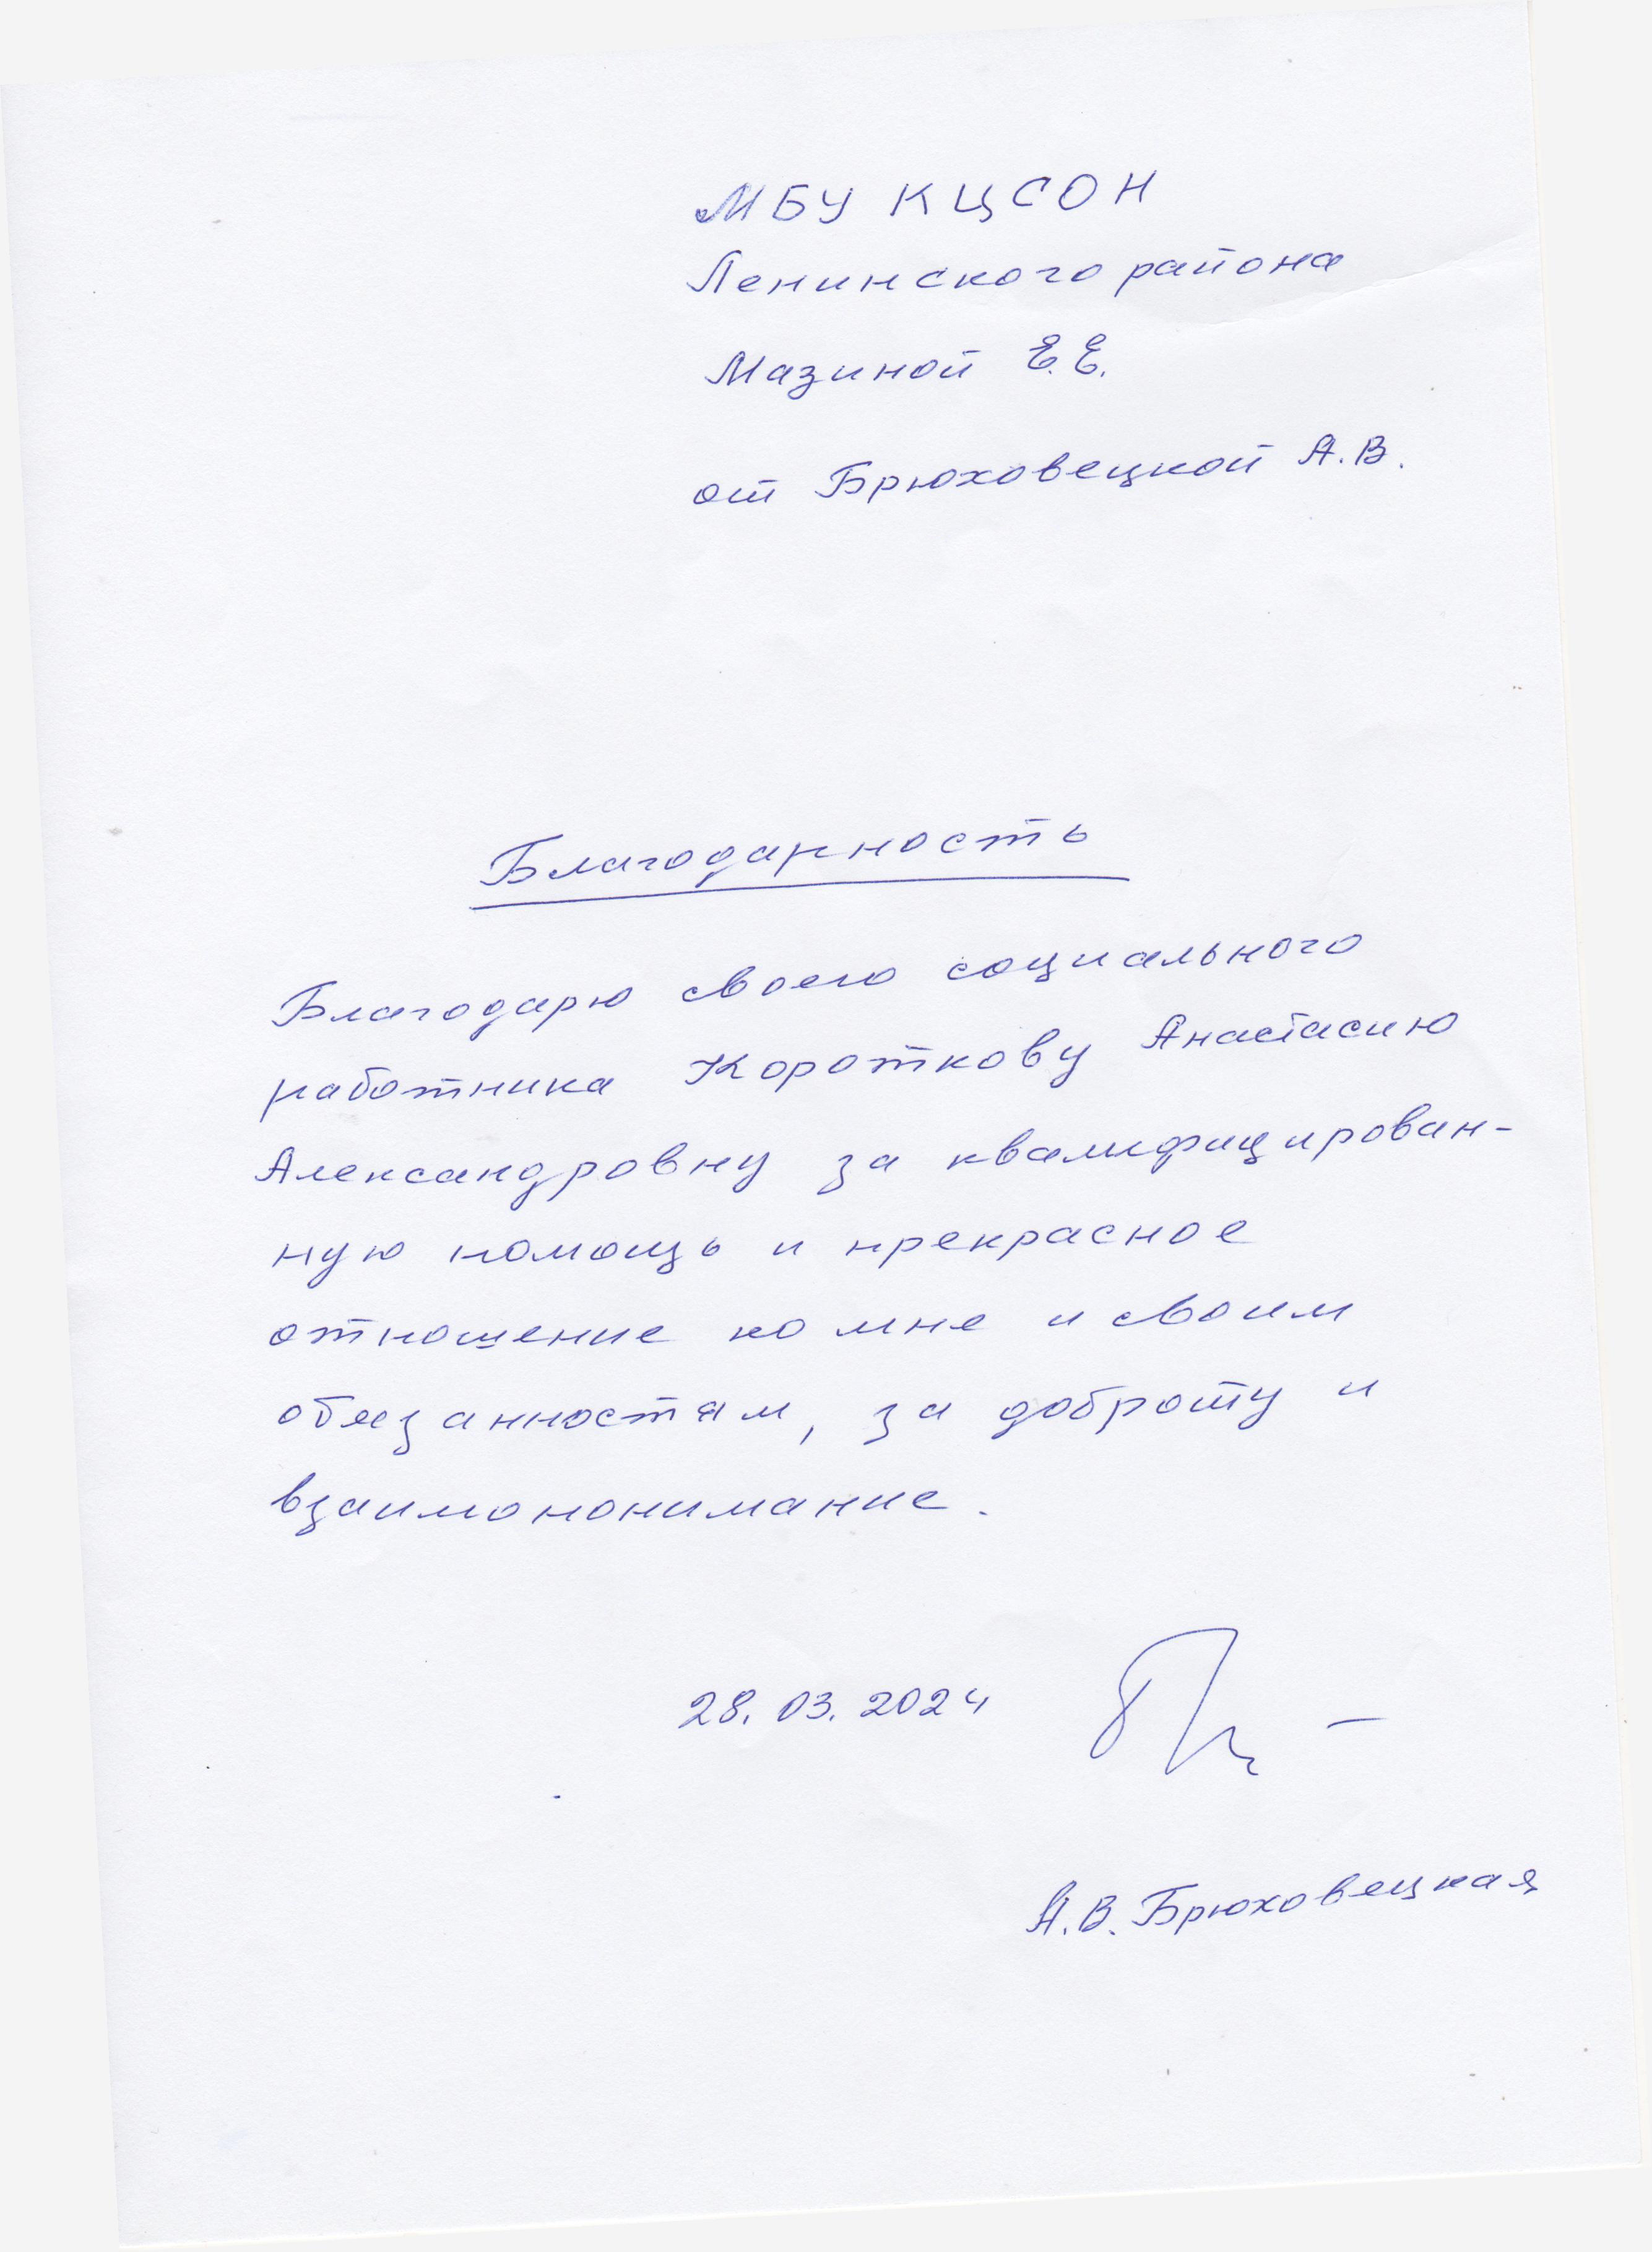 МБУ КЦСОН
Ленинского района
Мазиной Е.Е.
от Брюховецкой А.В.
Благодарность
Благодарю своего социального
работника Короткову Анастасию
Александровну за квалифицирован-
ную помощь и прекрасное
отношение ко мне и своим
обязанностям, за доброту и
взаимопонимание.
28.03.2024
А.В. Брюховецкая